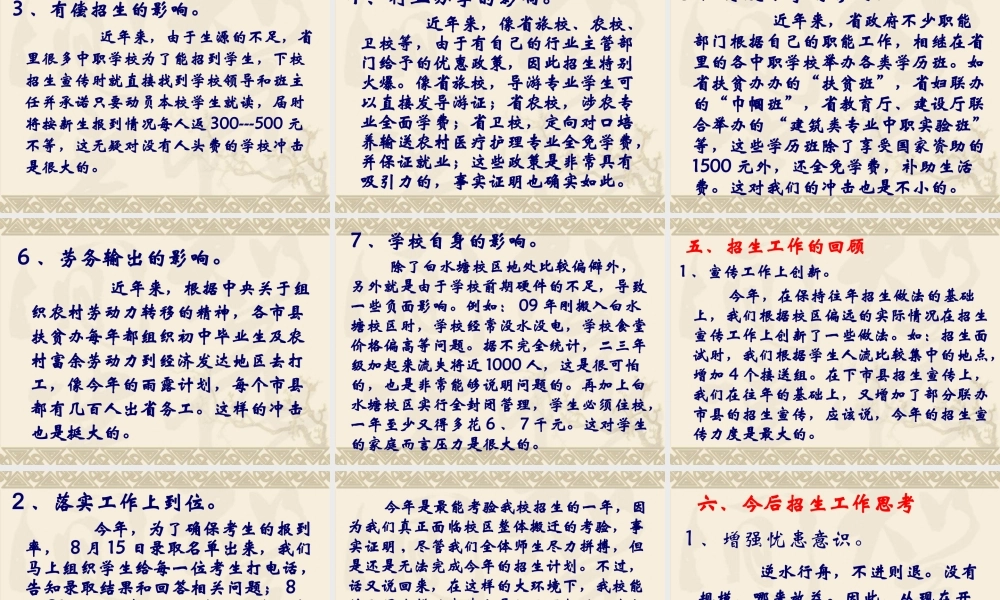 3、有偿招生的影响。
近年来，由于生源的不足，省
里很多中职学校为了能招到学生，下校
招生宣传时就直接找到学校领导和班主
任并承诺只要动员本校学生就读，届时
将按新生报到情况每人返 300---500 元
不等，这无疑对没有人头费的学校冲击
是很大的。
近年来，像省旅校、农校、
卫校等，由于有自己的行业主管部
门给予的优惠政策，因此招生特别
火爆。像省旅校，导游专业学生可
以直接发导游证；省农校，涉农专
业全面学费；省卫校，定向对口培
养输送农村医疗护理专业全免学费，
并保证就业；这些政策是非常具有
吸引力的，事实证明也确实如此。
近年来，省政府不少职能
部门根据自己的职能工作，相继在省
里的各中职学校举办各类学历班。如
省扶贫办办的“扶贫班”，省妇联办
的“巾帼班”，省教育厅、建设厅联
合举办的 “建筑类专业中职实验班”
等，这些学历班除了享受国家资助的
1500 元外，还全免学费，补助生活
费。这对我们的冲击也是不小的。
6、劳务输出的影响。
近年来，根据中央关于组
织农村劳动力转移的精神，各市县
扶贫办每年都组织初中毕业生及农
村富余劳动力到经济发达地区去打
工，像今年的雨露计划，每个市县
都有几百人出省务工。这样的冲击
也是挺大的。
7、学校自身的影响。
除了白水塘校区地处比较偏僻外，
另外就是由于学校前期硬件的不足，导致
一些负面影响。例如： 09 年刚搬入白水
塘校区时，学校经常没水没电，学校食堂
价格偏高等问题。据不完全统计，二三年
级加起来流失将近 1000 人，这是很可怕
的，也是非常能够说明问题的。再加上白
水塘校区实行全封闭管理，学生必须住校，
一年至少又得多花 6 、 7 千元。这对学生
的家庭而言压力是很大的。
五、招生工作的回顾
1、宣传工作上创新。
今年，在保持往年招生做法的基础
上，我们根据校区偏远的实际情况在招生
宣传工作上创新了一些做法。如：招生面
试时，我们根据学生人流比较集中的地点，
增加 4 个接送组。在下市县招生宣传上，
我们在往年的基础上，又增加了部分联办
市县的招生宣传，应该说，今年的招生宣
传力度是最大的。
2、落实工作上到位。
今年，为了确保考生的报到
率， 8 月 15 日录取名单出来，我们
马上组织学生给每一位考生打电话，
告知录取结果和回答相关问题； 8
今年是最能考验我校招生的一年，因
为我们真正面临校区整体搬迁的考验，事
实证明、尽管我们全体师生尽力拼搏，但
是还是无法完成今年的招生计划。不过，
话又说回来，在这样的大环境下，我校能
六、今后招生工作思考
1、增强忧患意识。
逆水行舟，不进则退。没有